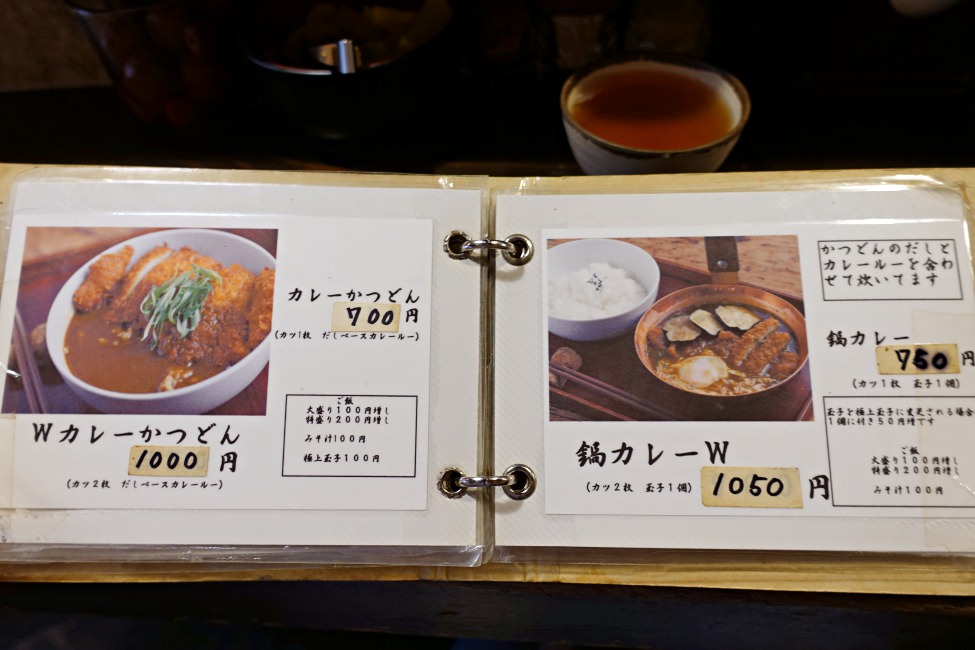 カレーかつどん
700円
(カツ1枚 だしベースカレールー)
ご飯
大盛り100円増し
特盛り200円増し
みそ汁100円
極上玉子100円
Wカレーかつどん
1000円
(カツ2枚 だしベースカレールー)
かつどんのだしと
カレールーを合わ
せて炊いてます
鍋カレー
750円
(カツ1枚 玉子1個)
玉子を極上玉子に変更される場合
1個に付き50円増です
ご飯
大盛り100円増し
特盛り200円増し
みそ汁100円
鍋カレーW
(カツ2枚 玉子1個)
1050円